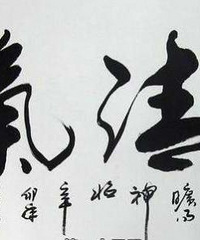 清氣
曠
神怡
辛卯年